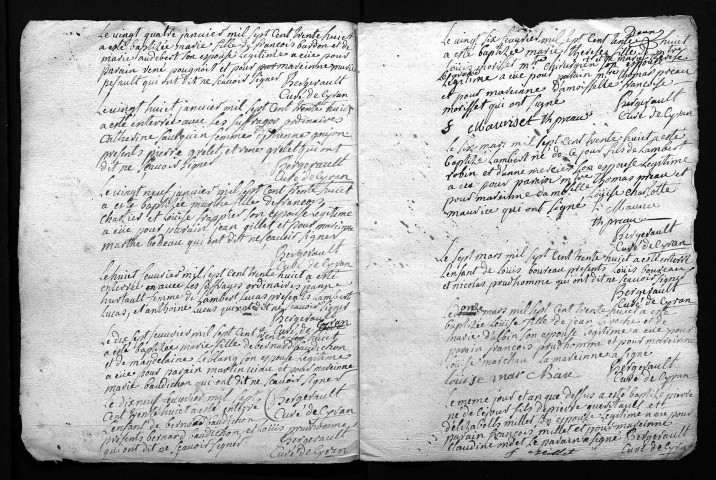 Le vingt quatre janvier mil sept cent trente huict
a esté baptizée marie fille de francois bardon et de
marie audebert son epouse legitime a eüe pour
parain rené pougnoit et pour mareinne marie
pesault qui ont dit ne scavoir signer
Bergerault
Curé de Cyran
Le vingt huict janvier mil sept cent trente huict
a esté enterrée avec les suffrages ordinaire
Catherine femme Etienne
presents pierre grelet, et rené grelet qui ont
dit ne scavoir signer
Bergerault
Curé de Cyran
Le vingt neuf janvier mil sept cent trente huict
a esté baptizée marthe fille de francois
charlier et louise frappier son epouse legitime
a eüe pour parain jean gillet et pour mareinne
marthe badeau qui ont dit ne scavoir signer
Bergerault
Curé de Cyran
Le huict fevrier mil sept cent trente huict a esté
enterrée avec les sufrages ordinaires jeanne
hersault femme de Lambert Lucas presents Lambert
Lucas, et anthoine Lucas qui ont dit ne scavoir signer
Bergerault
Curé de Cyran
Le dix sept fevrier mil sept cent trente huict
a esté baptizée marie fille de bernard baudichon
et de magdelaine Leblanc son epouse legitime
a eüe pour parain martin viau et pour mareinne
marie baudichon qui ont dit ne scavoir signer
Le dix neuf fevrier mil sept
cent trente huict a esté enterré
Bergerault
Curé de Cyran
L'enfant de bernard baudichon
presents bernard baudichon et Louis prudhomme
qui ont dit ne scavoir signer
Bergerault
Curé de Cyran
Le vingt six fevrier mil sept cent trente huict
a esté baptizée marie therese fille de
Louis morisset chirurgien son epouse
legitime a eüe pour parain mtre thomas preau
et pour mareinne damoiselle francoise
morisset qui ont signé
f Mauriset th preau
Bergerault
Curé de Cyran
Le six mars mil sept cent trente huict a esté
baptizé Lambert né de ce jour fils de Lambert
robin et danne mercier son epouse legitime
a eü pour parain mtre thomas preau et
pour mareinne damoiselle Louise charlotte
maurice qui ont signé
L Maurice
th preau
Bergerault
Curé de Cyran
Le sept mars mil sept cent trente huict a esté enterré
L'enfant de Louis boureau presents Louis boureau
et nicolas prudhomme qui ont dit ne scavoir signer
Bergerault
Curé de Cyran
Le onze mars mil sept cent trente huict a esté
baptizée Louise fille de jean et de
marie son epouse legitime a eüe pour
parain francois prudhomme et pour mareinne
Louise marchau la mareinne a signé
Louise mar chau
Bergerault
Curé de Cyran
Le meme jour et an que dessus a esté baptizé
né de ce jour fils de pierre et
delizabette millet son epouse legitime a eü pour
parain francois millet et pour mareinne
Claudine millet le parain a signé
f millet
Bergerault
Curé de Cyran